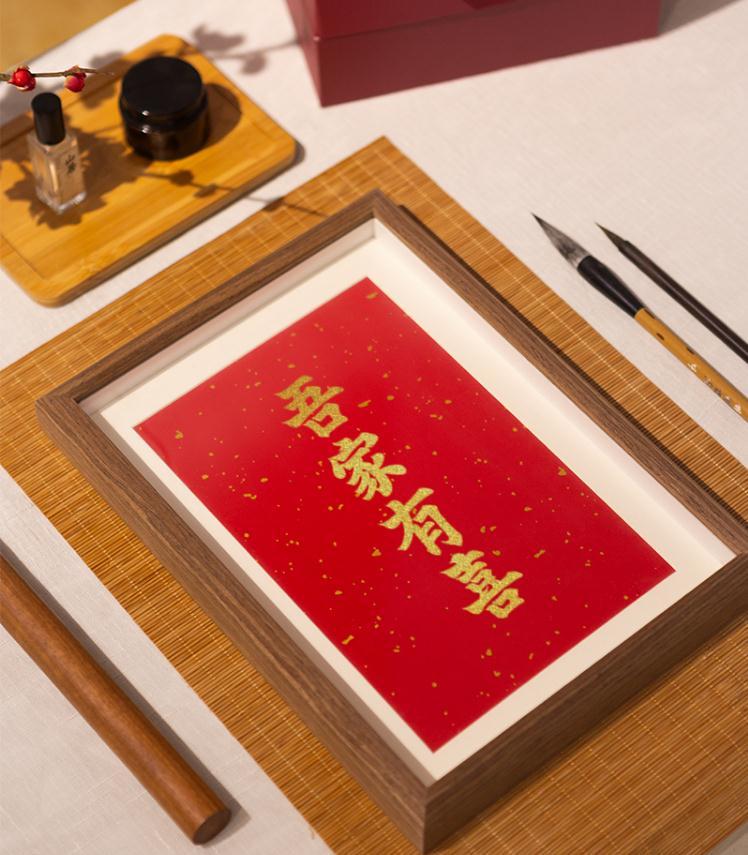 吾家有喜